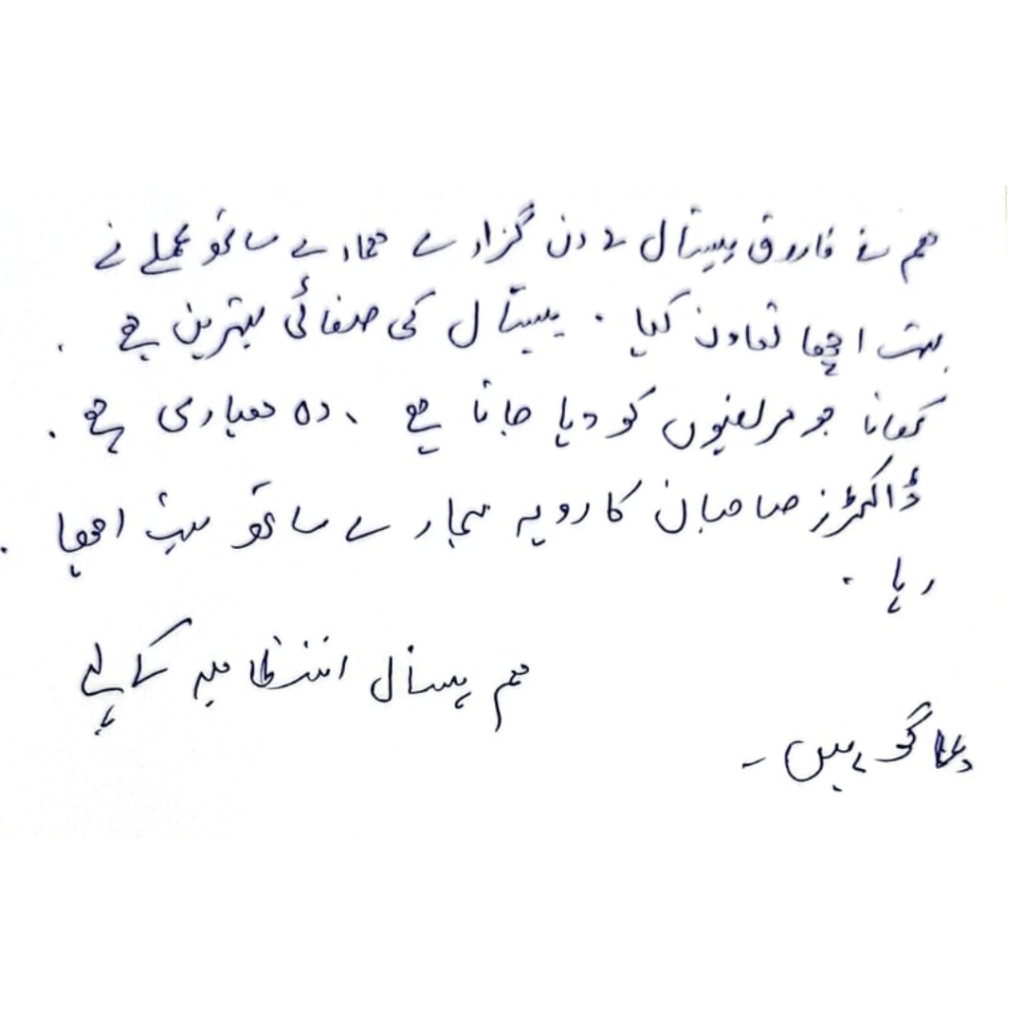 ہم نے فاروق ہسپتال 2 دن گزارے ہمارے ساتھ عملے نے
بہت اچھا تعاون کیا . ہسپتال کی صفائی بہترین ہے .
کھانا جو مریضوں کو دیا جاتا ہے ، وہ معیاری ہے .
ڈاکٹرز صاحبان کا رویہ ہمارے ساتھ بہت اچھا .
رہا .
ہم ہسپتال انتظامیہ کے لیے
دعا گو ہیں ۔